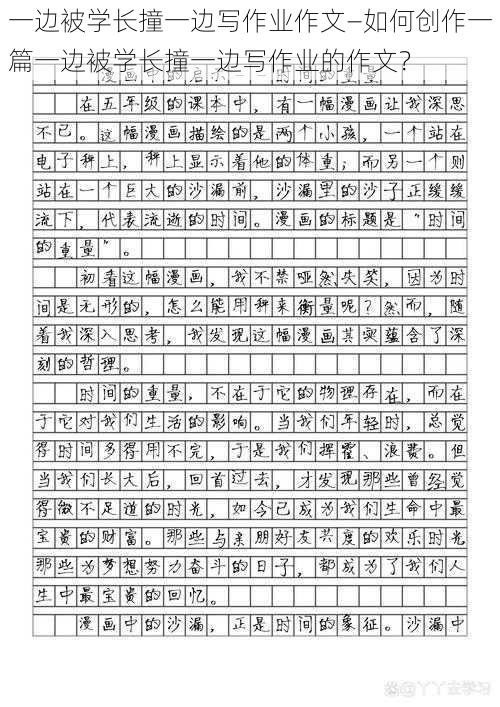 一边被学长撞一边写作业作文–如何创作一
篇一边被学长撞一边写作业的作文？
漫画中的启示——时间的重量
在五年级的课本中，有一幅漫画让我深思
不已。这幅漫画描绘的是两个小孩，一个站在
电子秤上，秤上显示着他的体重；而另一个则
站在一个巨大的沙漏前，沙漏里的沙子正缓缓
流下，代表流逝的时间。漫画的标题是“时间
的重量”。
初看这幅漫画，我不禁哑然失笑，因为时
间是无形的，怎么能用秤来衡量呢？然而，随
着我深入思考，我发现这幅漫画其实蕴含了深
刻的哲理。
时间的重量，不在于它的物理存在，而在
于它对我们生活的影响。当我们年轻时，总觉
得时间多得用不完，于是我们挥霍、浪费。但
当我们长大后，回首过去，才发现那些曾经觉
得微不足道的时光，如今已成为我们生命中最
宝贵的财富。那些与亲朋好友共度的欢乐时光
那些为梦想努力奋斗的日子，都成为了我们人
生中最宝贵的回忆。
漫画中的沙漏，正是时间的象征。沙漏中
@丫丫去学习